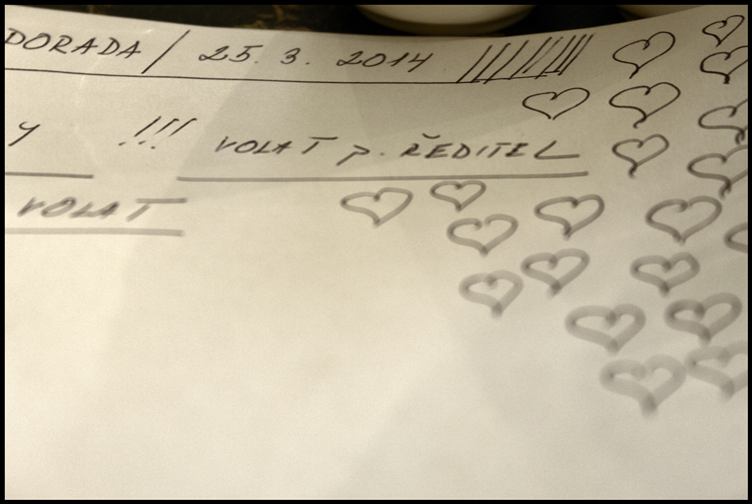 DORADA / 25. 3. 2014
y !!! VOLAT p. ŘEDITEL
VOLAT